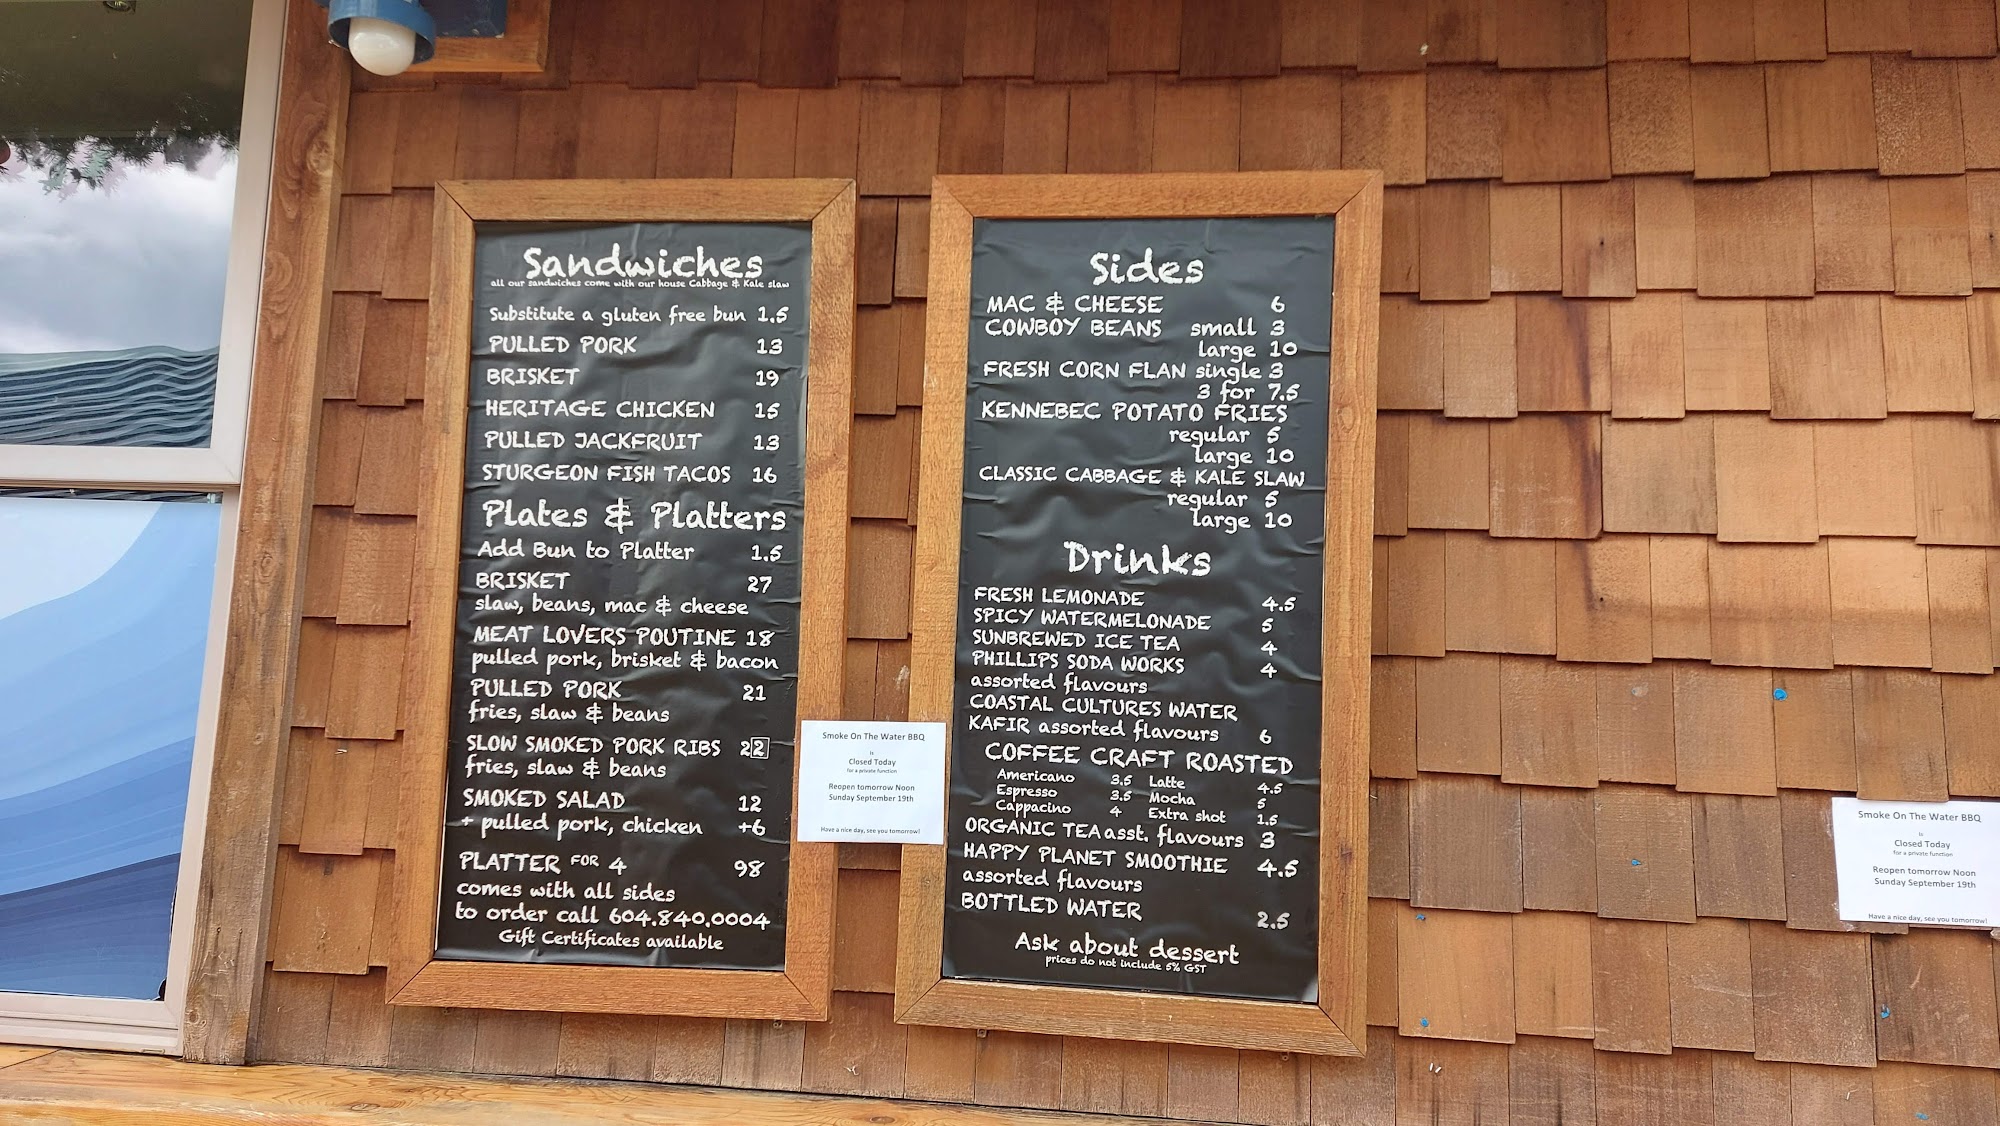 Sandwiches
all our sandwiches come with our house Cabbage & Kale slaw
Substitute a gluten free bun 1.5
PULLED PORK 13
BRISKET 19
HERITAGE CHICKEN 15
PULLED JACKFRUIT 13
STURGEON FISH TACOS 16
Plates & Platters
Add Bun to Platter 1.5
BRISKET 27
slaw, beans, mac & cheese
MEAT LOVERS POUTINE 18
pulled pork, brisket & bacon
PULLED PORK 21
fries, slaw & beans
SLOW SMOKED PORK RIBS 22
fries, slaw & beans
SMOKED SALAD 12
+ pulled pork, chicken +6
PLATTER FOR 4 98
comes with all sides
to order call 604.840.0004
Gift Certificates available
Smoke On The Water BBQ
Is
Closed Today
for a private function
Reopen tomorrow Noon
Sunday September 19th
Have a nice day, see you tomorrow!
Sides
MAC & CHEESE 6
COWBOY BEANS small 3
large 10
FRESH CORN FLAN single 3
3 for 7.5
KENNEBEC POTATO FRIES
regular 5
large 10
CLASSIC CABBAGE & KALE SLAW
regular 5
large 10
Drinks
FRESH LEMONADE 4.5
SPICY WATERMELONADE 5
SUNBREWED ICE TEA 4
PHILLIPS SODA WORKS 4
assorted flavours
COASTAL CULTURES WATER
KAFIR assorted flavours 6
COFFEE CRAFT ROASTED
Americano 3.5 Latte 4.5
Espresso 3.5 Mocha 5
Cappacino 4 Extra shot 1.5
ORGANIC TEA asst. flavours 3
HAPPY PLANET SMOOTHIE 4.5
assorted flavours
BOTTLED WATER 2.5
Ask about dessert
prices do not include 5% GST
Smoke On The Water BBQ
Is
Closed Today
for a private function
Reopen tomorrow Noon
Sunday September 19th
Have a nice day, see you tomorrow!